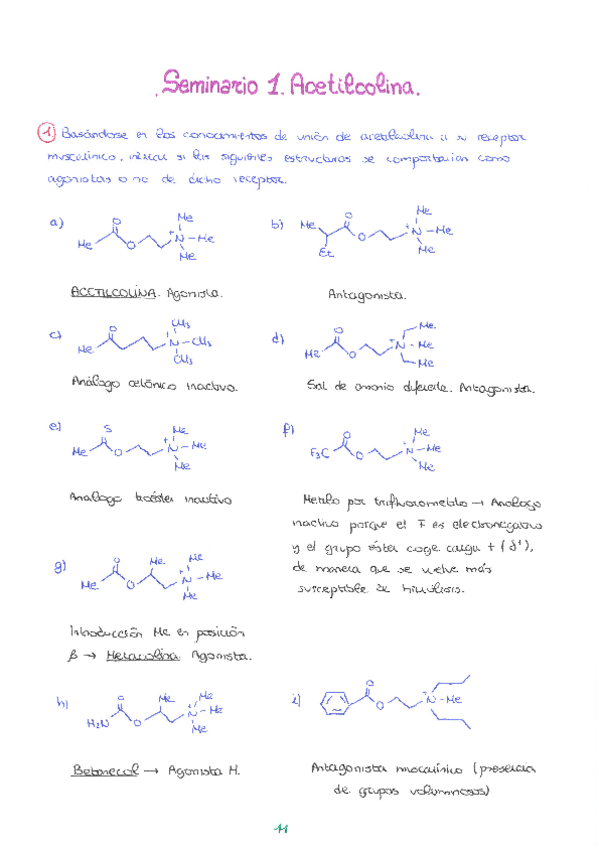 Seminario 1. Acetilcolina.
1 Basándose en los conocimientos de unión de acetilcolina a su receptor
muscarínico, indicar si las siguientes estructuras se comportarían como
agonistas o no de dicho receptor.
a) Me O O N + Me Me Me
b) Me Et O O N + Me Me Me
ACETILCOLINA. Agonista.
Antagonista.
c) Me O N + CH3 CH3 CH3
d) Me O O N + Me Me Me
Análogo cetónico inactivo.
Sal de amonio diferente. Antagonista.
e) Me S O N + Me Me Me
f) F3C O O N + Me Me Me
Análogo tioéster inactivo
Metilo por trifluorometilo → Análogo
inactivo porque el F es electronegativo
y el grupo éster coge carga + (δ+),
de manera que se vuelve más
susceptible de hidrólisis.
g) Me O O Me N + Me Me Me
Introducción Me en posición
β → Metacolina Agonista.
h) H2N O O Me N + Me Me Me
i) O O N + Me
Betanecol → Agonista M.
Antagonista muscarínico (presencia
de grupos voluminosos)